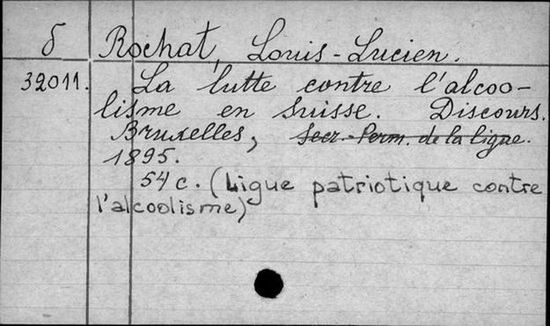 δ Rochat, Louis-Lucien.
32011. La lutte contre l'alcoo-
lisme en Suisse. Discours.
Bruxelles, Secr.-Perm. de la Ligue.
1895.
54 c. (Ligue patriotique contre
l'alcoolisme)